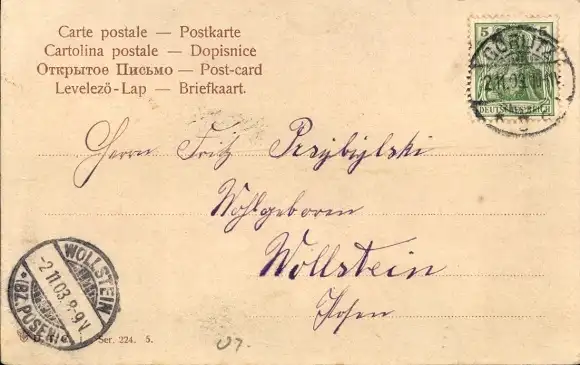 Carte postale — Postkarte
Cartolina postale — Dopisnice
Открытое Письмо — Post-card
Levelező-Lap — Briefkaart.
5 5
DEUTSCHES REICH
GÖRLITZ
2.11.03
Herrn Fritz Przybylski
Wohlgeboren
Wollstein
Posen
WOLLSTEIN
-2.11.03.8-9V.
(BZ. POSEN)
Ser. 224. 5.
07.